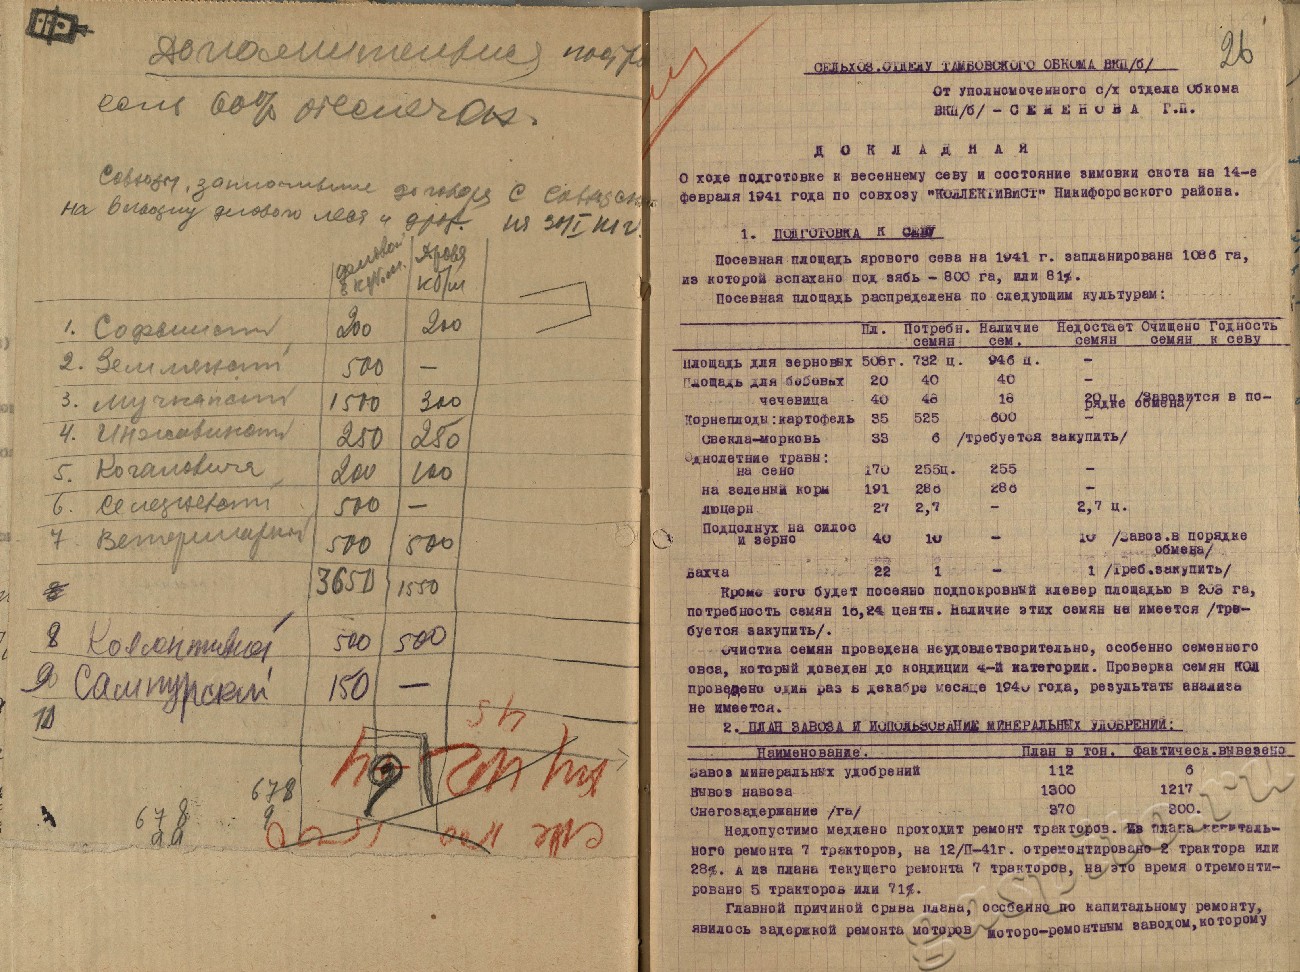 Дополнительная
если 60% отсечен
Совхозы, заключившие договора с
на вывозку делового леса и дров. на 30/I 41 г.
деловой в куб.м. Дрова кб/м
1. 200 200
2. Землянский 500 —
3. Мучкапский 1500 300
4. Инжавинский 250 250
5. Кагановича 200 100
6. Селезневский 500 —
7 Ветеринарный 500 500
3650 1550
8 500 500
9 Сампурский 150 —
10
45
678
678
9
26
СЕЛЬХОЗ.ОТДЕЛУ ТАМБОВСКОГО ОБКОМА ВКП/б/
От уполномоченного с/х отдела Обкома
ВКП/б/ - С Е М Е Н О В А Г.П.
Д О К Л А Д Н А Я
О ходе подготовке к весеннему севу и состояние зимовки скота на 14-е
февраля 1941 года по совхозу "КОЛЛЕКТИВИСТ" Никифоровского района.
1. ПОДГОТОВКА К СЕВУ
Посевная площадь ярового сева на 1941 г. запланирована 1086 га,
из которой вспахано под зябь - 800 га, или 81%.
Посевная площадь распределена по следующим культурам:
Пл. Потребн. семян Наличие сем. Недостает семян Очищено семян Годность к севу
Площадь для зерновых 508г. 732 ц. 946 ц. -
Площадь для бобовых 20 40 40 -
чечевица 40 48 18 20 ц /Завозится в порядке обмена/
Корнеплоды:картофель 35 525 600 -
Свекла-морковь 33 6 /требуется закупить/
Однолетние травы:
на сено 170 255ц. 255 -
на зеленый корм 191 286 286 -
люцерн 27 2,7 - 2,7 ц.
Подсолнух на силос
и зерно 40 10 - 10 /Завоз.в порядке
обмена/
Бахча 22 1 - 1 /Треб.закупить/
Кроме того будет посеяно подпокровный клевер площадью в 203 га,
потребность семян 16,24 центн. Наличие этих семян не имеется /тре-
буется закупить/.
Очистка семян проведена неудовлетворительно, особенно семенного
овса, который доведен до кондиции 4-й категории. Проверка семян КСЛ
проведено один раз в декабре месяце 1940 года, результать анализа
не имеется.
2. ПЛАН ЗАВОЗА И ИСПОЛЬЗОВАНИЕ МИНЕРАЛЬНЫХ УДОБРЕНИЙ:
Наименование. План в тон. Фактическ.вывезено
Завоз минеральных удобрений 112 6
Вывоз навоза 1300 1217
Снегозадержание /га/ 370 300.
Недопустимо медлено проходит ремонт тракторов. Из плана капиталь-
ного ремонта 7 тракторов, на 12/П-41г. отремонтировано 2 трактора или
28%. А из плана текущего ремонта 7 тракторов, на это время отремонти-
ровано 5 тракторов или 71%.
Главной причиной срыва плана, особенно по капитальному ремонту,
явилось задержкой ремонта моторов моторо-ремонтным заводом,которому